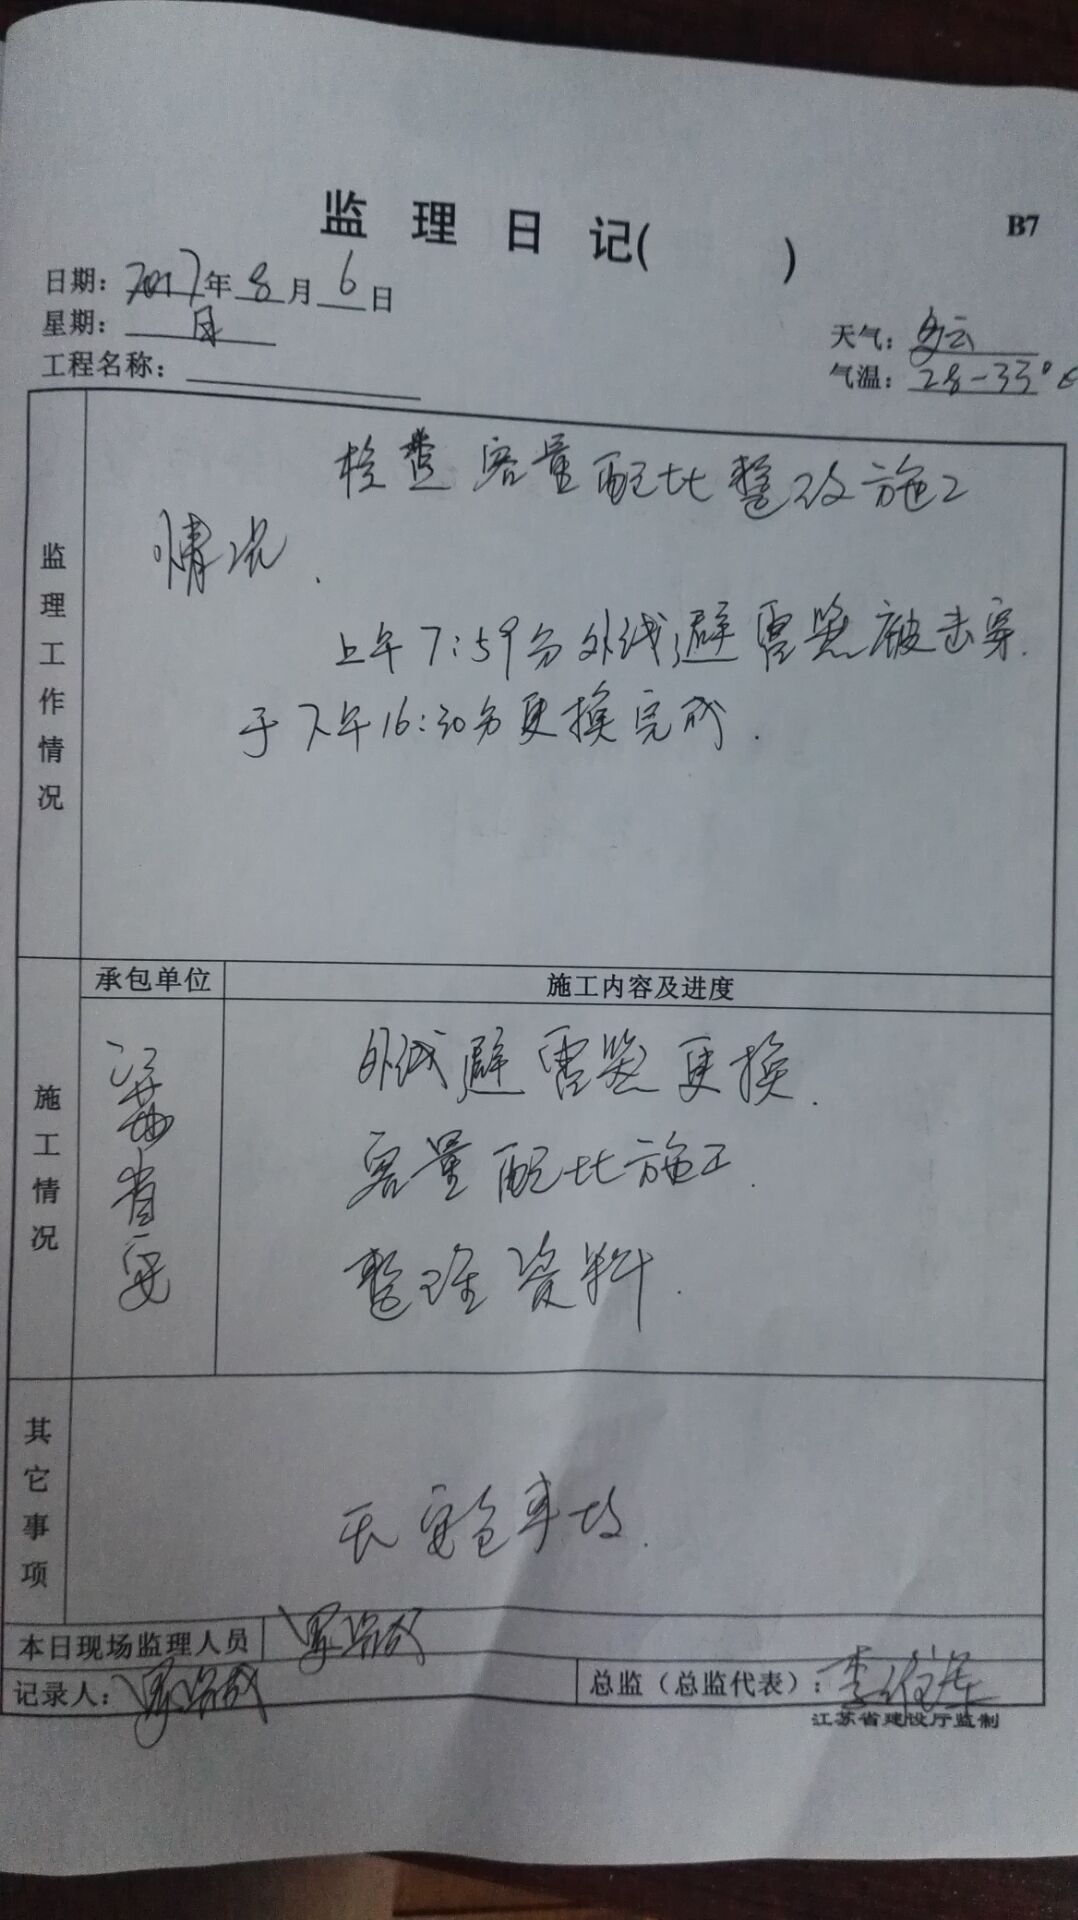 监理日记( )
B7
日期：2017年8月6日
星期：日
天气：多云
工程名称：
气温：28-33°C
监理工作情况
检查容量配比整改施工
情况.
上午7:59分外线避雷器被击穿.
于下午16:30分更换完成.
施工情况
承包单位
施工内容及进度
江苏省安
外线避雷器更换.
容量配比施工.
整理资料.
其它事项
无安全事故.
本日现场监理人员
记录人：
总监（总监代表）：
江苏省建设厅监制